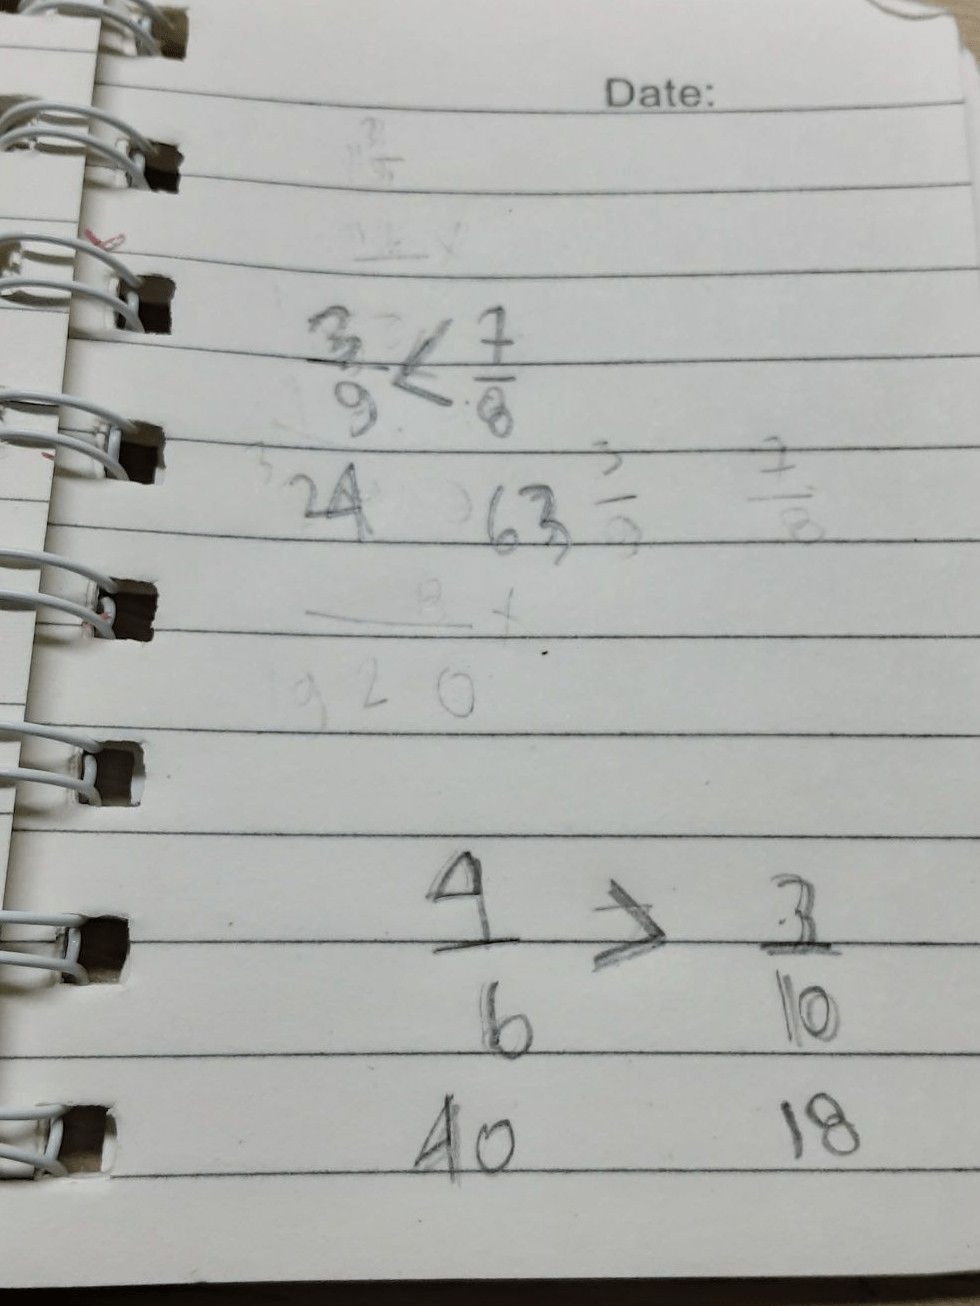 Date:
3/9 < 7/8
24 63 3/9 7/8
8 +
9 2 0
4/6 > 3/10
40 18